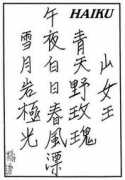 HAIKU
山女王
青天野玫瑰
午夜白日春風漂
雪月岩極光